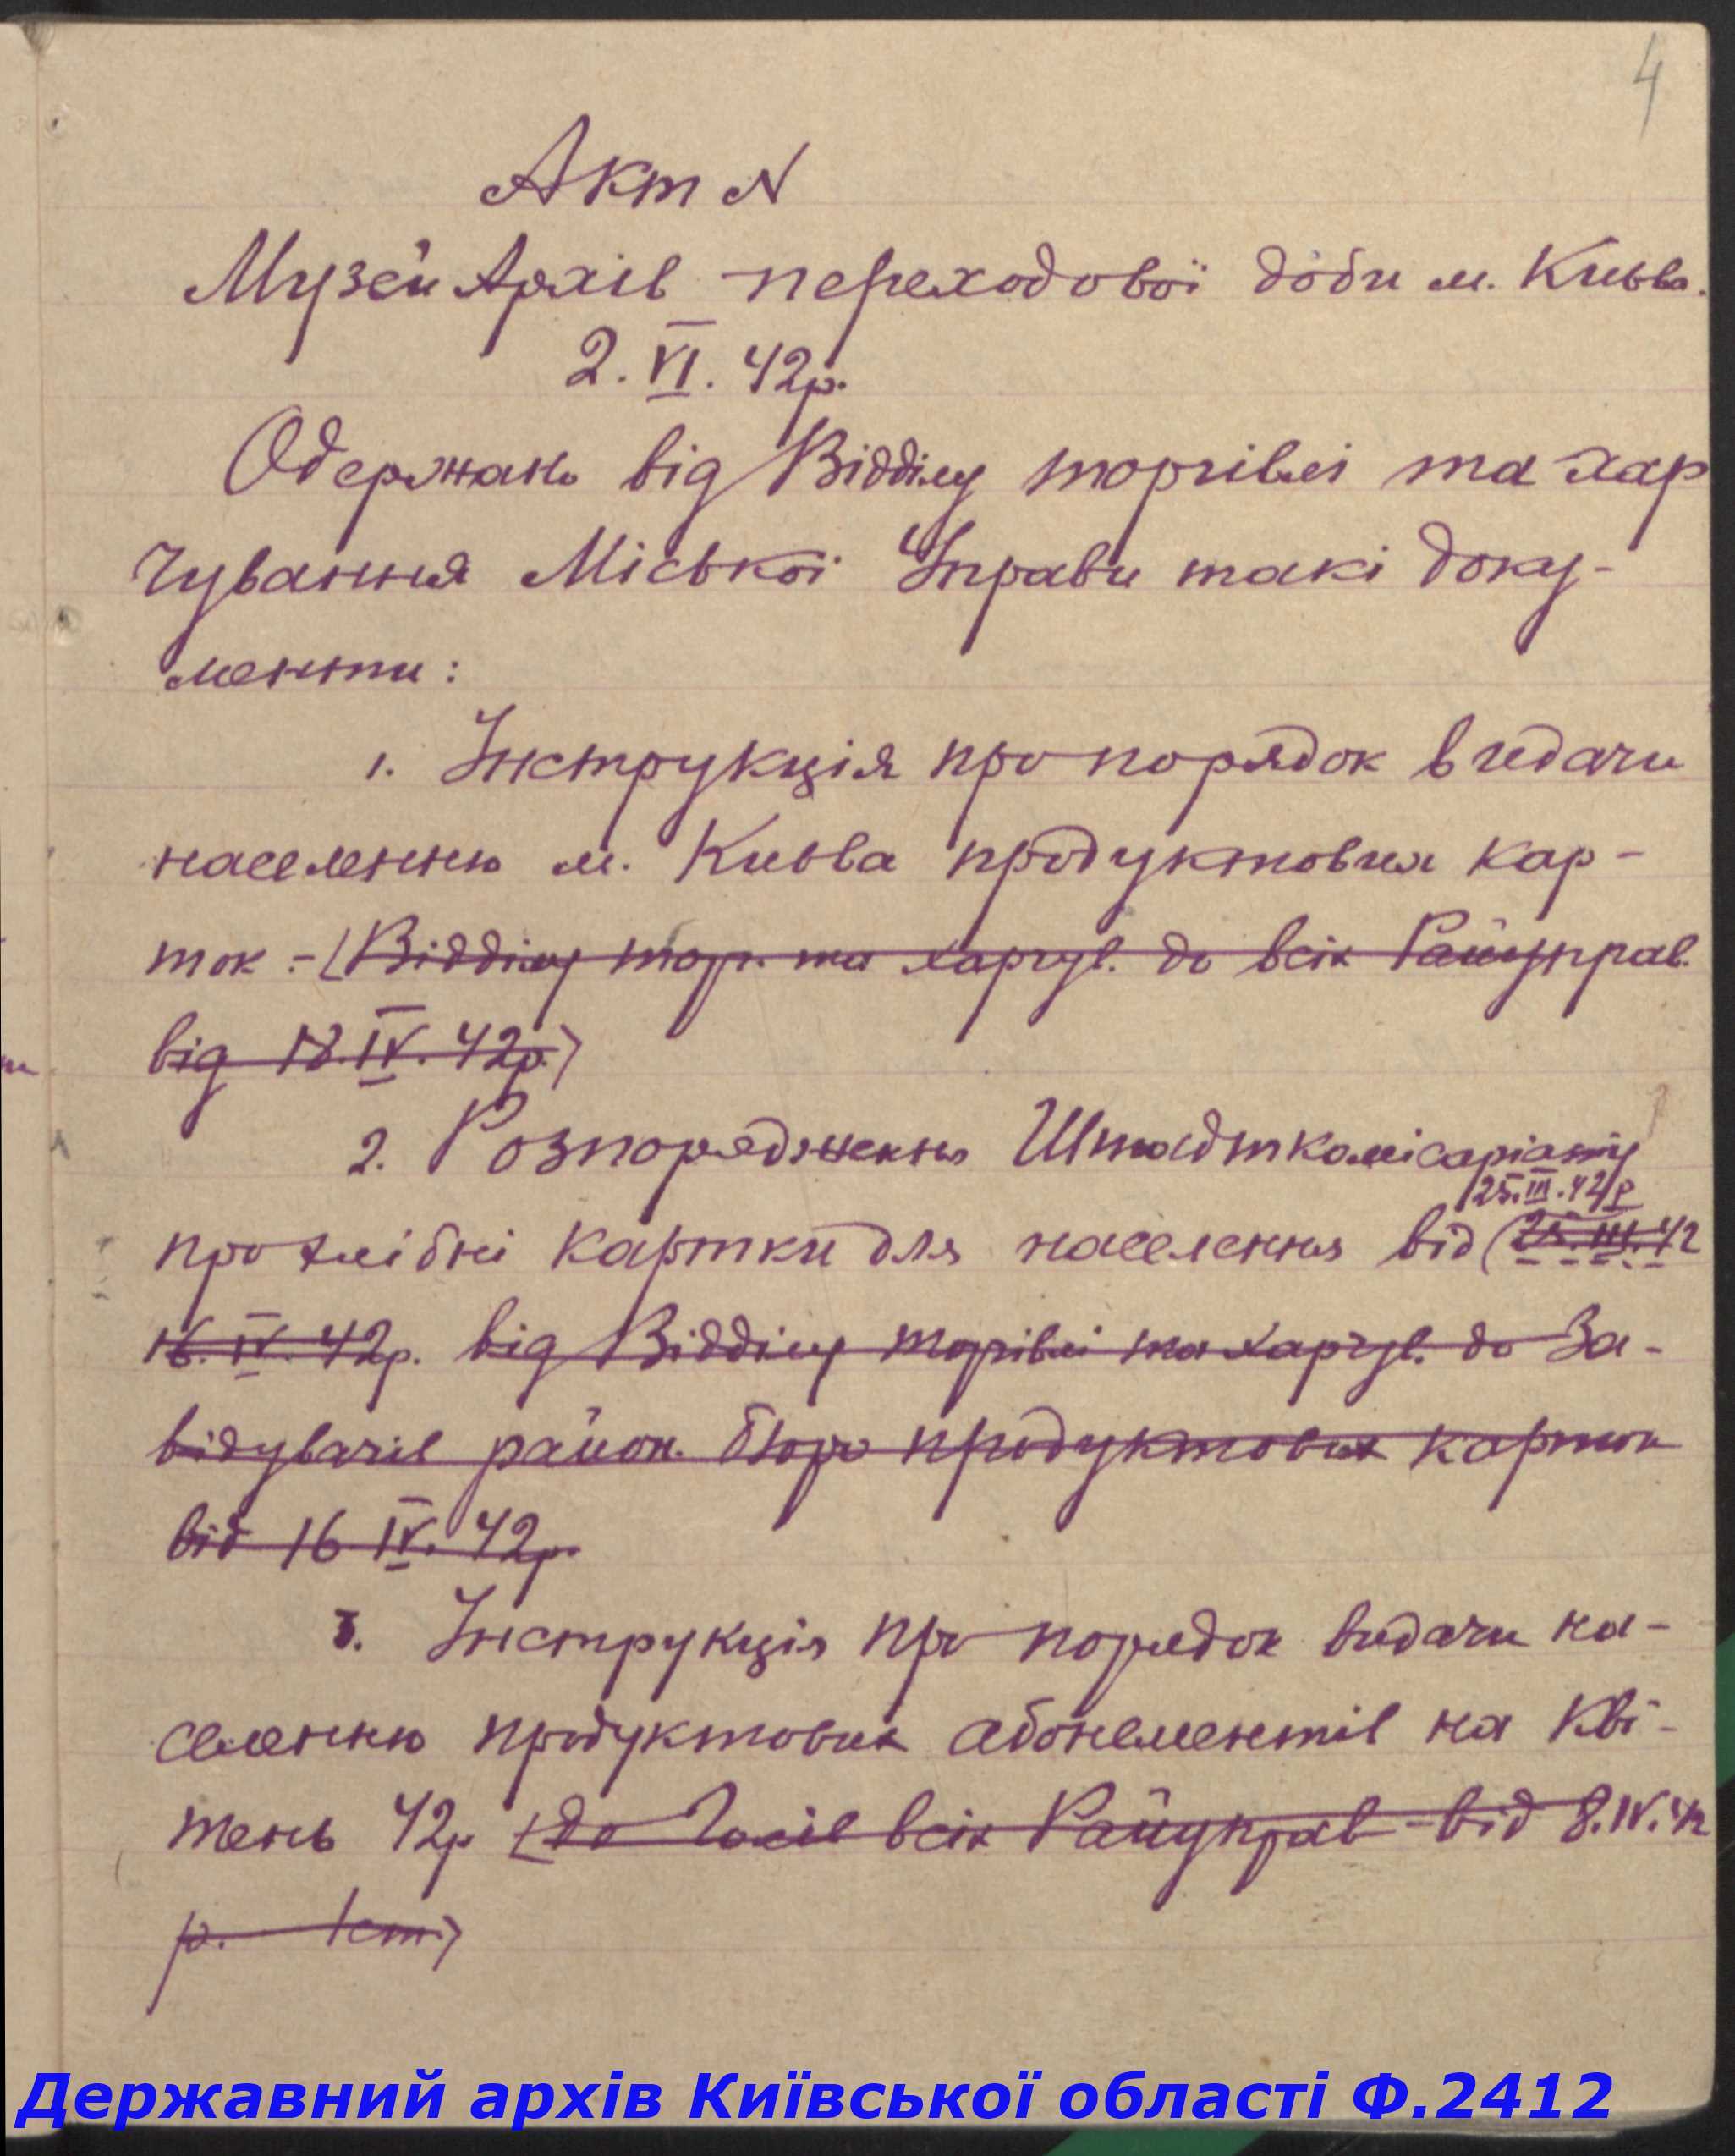 4
Акт N
Музей Архів переходової доби м. Києва.
2. VI. 42р.
Одержано від Відділу торгівлі та хар
чування Міської Управи такі доку-
менти:
1. Інструкція про порядок видачи
населенню м. Києва продуктових кар-
ток - (Відділу торг. та харчув. до всіх Райуправ.
від 18.IV.42р.)
2. Розпорядження Штадткомісаріяту
25.III.42р
про хлібні картки для населення від (25.III.42
16.IV.42р. від Відділу торгівлі та харчув. до За-
відувачів район. бюро продуктових карток
від 16 IV. 42р.
3. Інструкція про порядок видачи на-
селенню продуктових абонементів на кві-
тень 42р (до Голів всіх Райуправ - від 8.IV.42
р. 1 ст.)
Державний архів Київської області Ф.2412